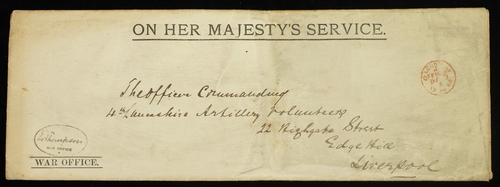 ON HER MAJESTY'S SERVICE.
The Officer Commanding
4th Lancashire Artillery Volunteers
22 Highgate Street
Edge Hill
Liverpool
Thompson
WAR OFFICE
WAR OFFICE.